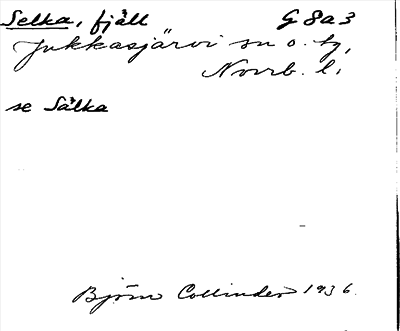 Selka, fjäll G 8a3
Jukkasjärvi sn o. tg,
Norrb. l.
se Sälka
Björn Collinder 1936.